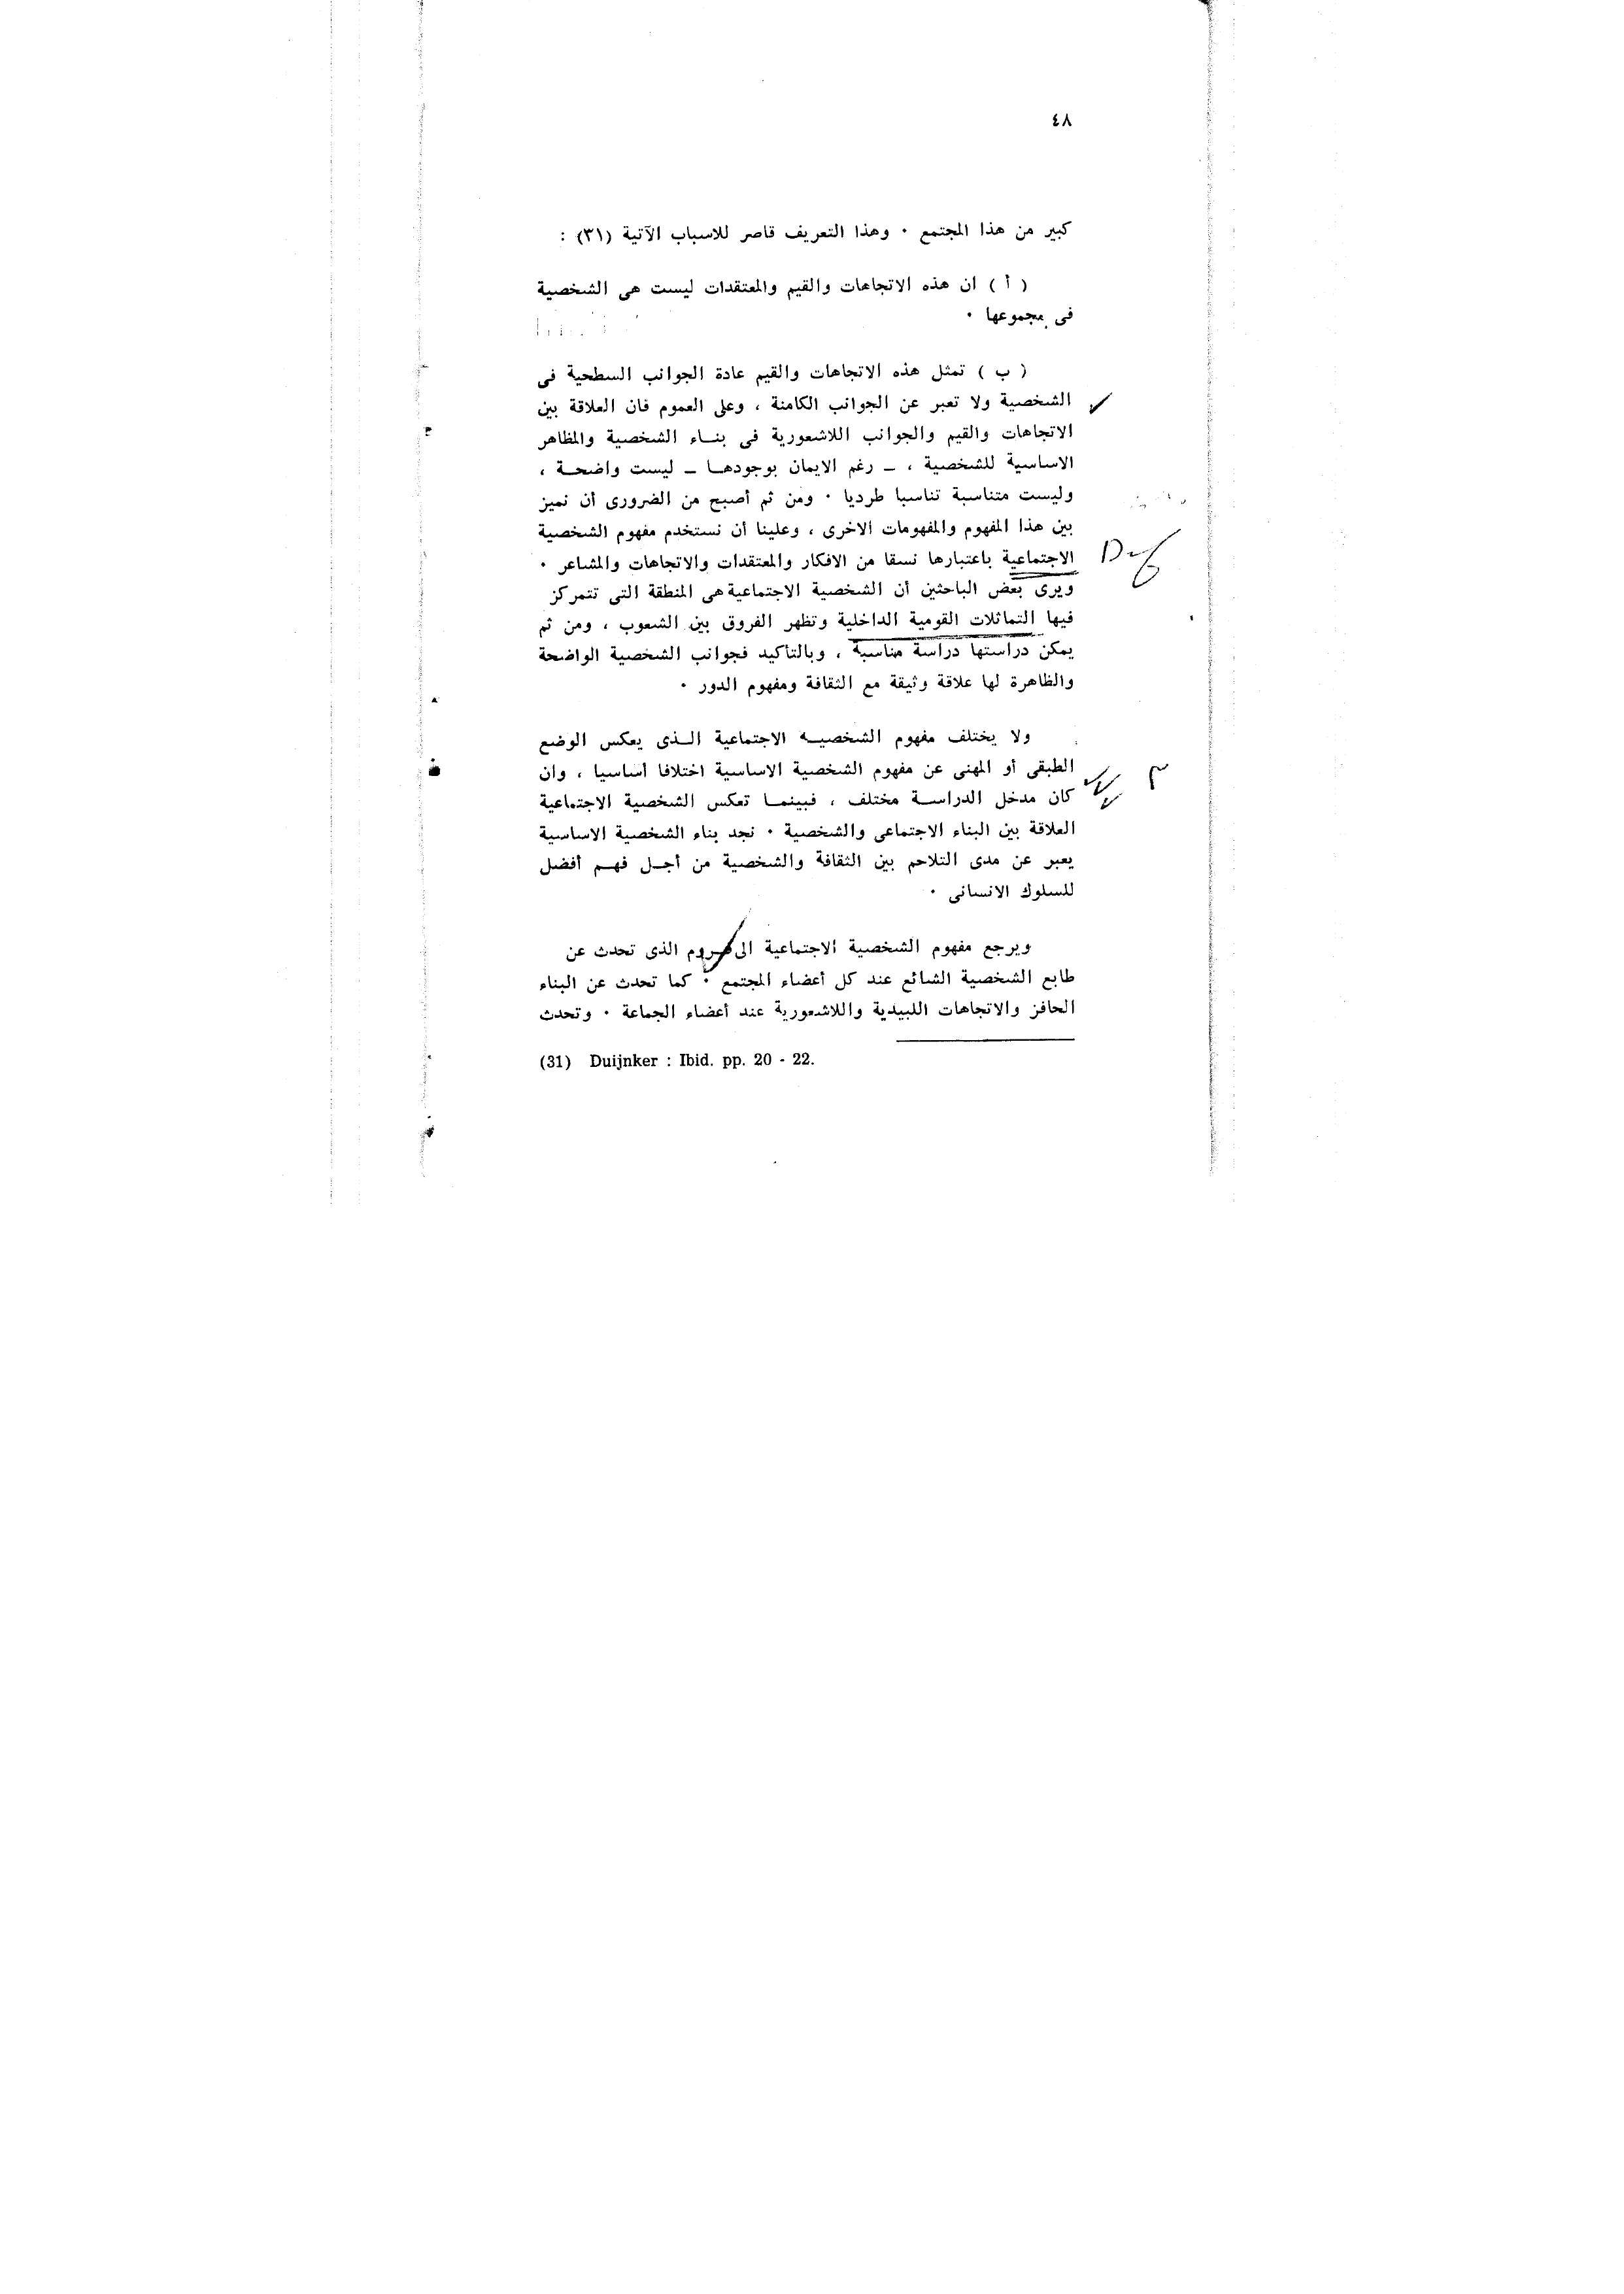 ٤٨
كبير من هذا المجتمع · وهذا التعريف قاصر للاسباب الآتية (٣١) :
( أ ) ان هذه الاتجاهات والقيم والمعتقدات ليست هى الشخصية
فى مجموعها ·
( ب ) تمثل هذه الاتجاهات والقيم عادة الجوانب السطحية فى
الشخصية ولا تعبر عن الجوانب الكامنة ، وعلى العموم فان العلاقة بين
الاتجاهات والقيم والجوانب اللاشعورية فى بنــاء الشخصية والمظاهر
الاساسية للشخصية ، ــ رغم الايمان بوجودهــا ــ ليست واضحــة ،
وليست متناسبة تناسبا طرديا · ومن ثم أصبح من الضرورى أن نميز
بين هذا المفهوم والمفهومات الاخرى ، وعلينا أن نستخدم مفهوم الشخصية
الاجتماعية باعتبارها نسقا من الافكار والمعتقدات والاتجاهات والمشاعر ·
Def
ويرى بعض الباحثين أن الشخصية الاجتماعية هى المنطقة التى تتمركز
فيها التماثلات القومية الداخلية وتظهر الفروق بين الشعوب ، ومن ثم
يمكن دراستها دراسة مناسبة ، وبالتأكيد فجوانب الشخصية الواضحة
والظاهرة لها علاقة وثيقة مع الثقافة ومفهوم الدور ·
ولا يختلف مفهوم الشخصيــه الاجتماعية الــذى يعكس الوضع
الطبقى أو المهنى عن مفهوم الشخصية الاساسية اختلافا أساسيا ، وان
كان مدخل الدراســة مختلف ، فبينمــا تعكس الشخصية الاجتماعية
العلاقة بين البناء الاجتماعى والشخصية · نجد بناء الشخصية الاساسية
يعبر عن مدى التلاحم بين الثقافة والشخصية من أجــل فهــم أفضل
للسلوك الانسانى ·
ويرجع مفهوم الشخصية الاجتماعية الى فروم الذى تحدث عن
طابع الشخصية الشائع عند كل أعضاء المجتمع · كما تحدث عن البناء
الحافز والاتجاهات اللبيدية واللاشعورية عند أعضاء الجماعة · وتحدث
(31) Duijnker : Ibid. pp. 20 - 22.